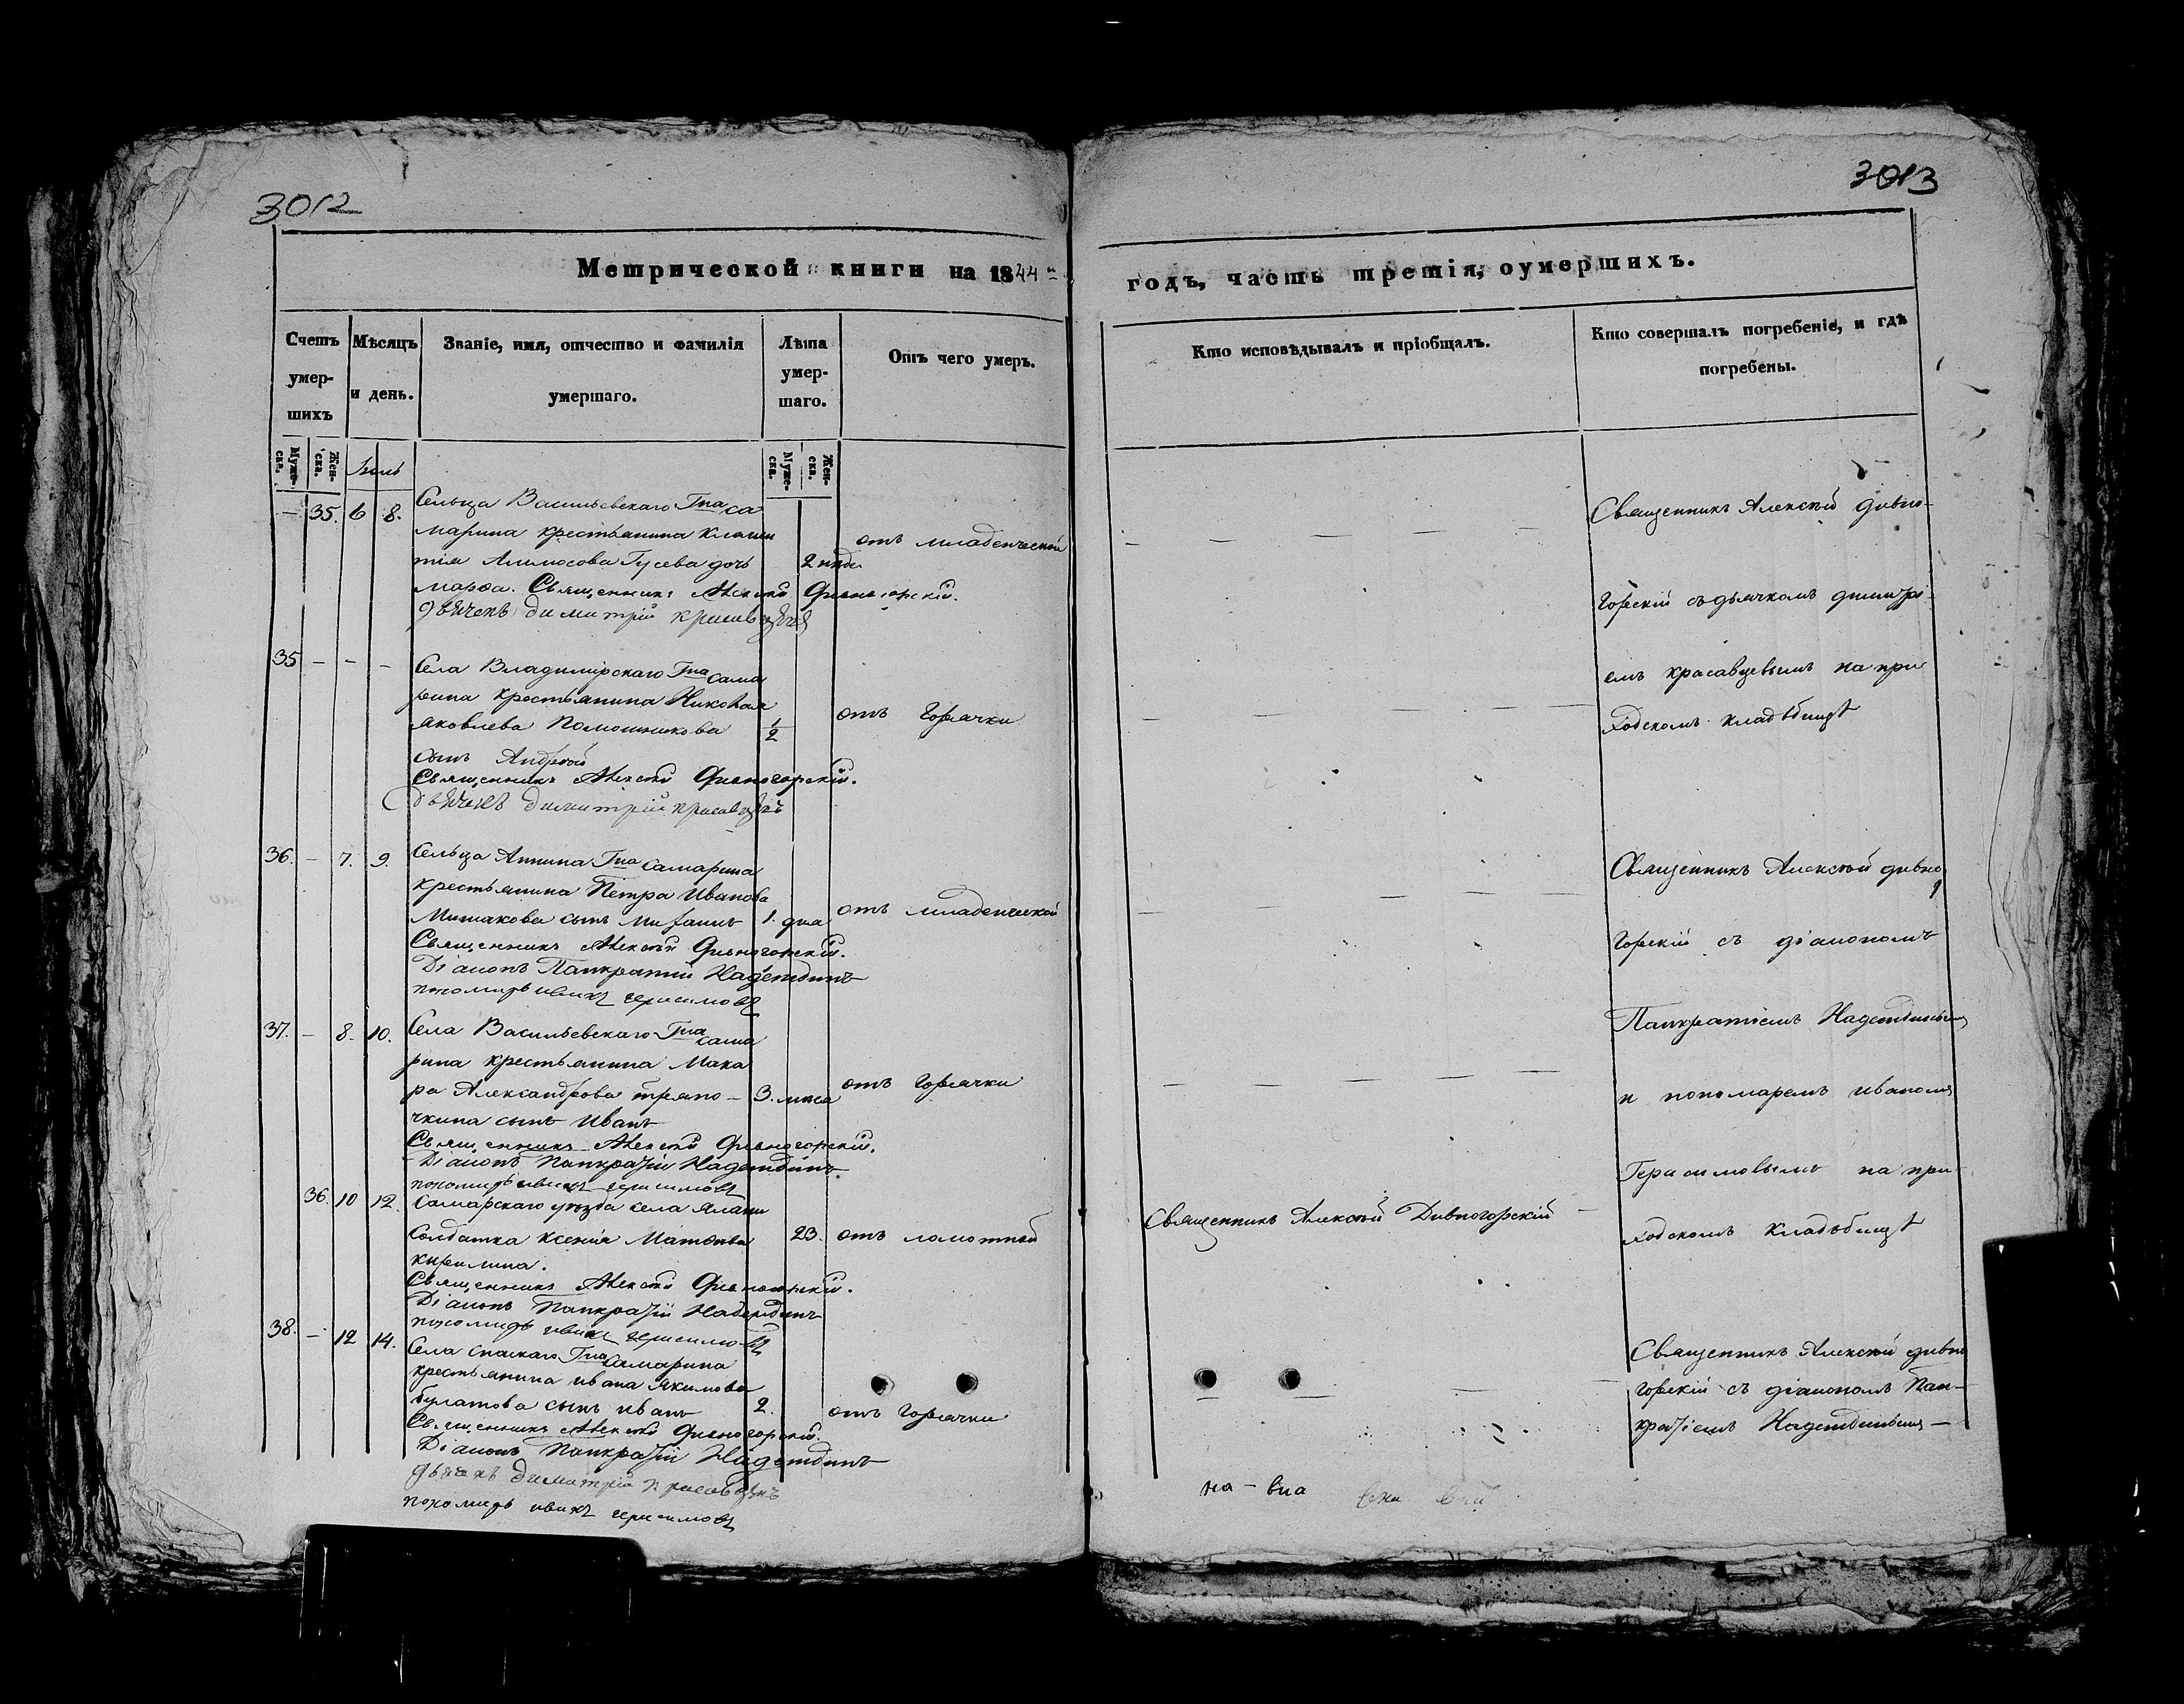 3012
3013
Метрической книги на 1844й
годъ, часть третія, оумершихъ.
Счетъ умер-шихъ
Мѣсяцъ и день.
Званіе, имя, отчество и фамилія умершаго.
Лѣта умер-шаго.
Отъ чего умеръ.
Кто исповѣдывалъ и пріобщалъ.
Кто совершалъ погребеніе, и гдѣ погребены.
Муже-ска.
Жен-ска.
Муже-ска.
Жен-ска.
— 35. 6 8.
Сельца Васильевскаго Гна Са
марина крестьянина
Гусева дочь
Марѳа. Священникъ Алексѣй Дивногорскій.
дьячекъ димитрій красавцевъ
отъ младенческой
Священникъ Алексѣй Дивно-
горскій съ дьячкомъ димитрі-
емъ красавцевымъ на при
ходскомъ кладбищѣ
35 — — —
Села Владимірскаго Гна Сама
рина крестьянина Николая
Яковлева Помошникова 1/2
сынъ Андрей
Священникъ Алексѣй Дивногорскій.
дьячекъ димитрій красавцевъ
отъ Горячки
36. — 7. 9.
Сельца Аннина Гна Самарина
крестьянина Петра Иванова
сынъ 1. дня
Священникъ Алексѣй Дивногорскій.
Діаконъ Панкратій Надеждинъ
пономарь иванъ герасимовъ
отъ младенческой
Священникъ Алексѣй дивно
горскій съ діакономъ
Панкратіемъ Надеждинымъ
и пономаремъ Иваномъ
Герасимовымъ на при-
ходскомъ кладбищѣ
37. — 8. 10.
Села Васильевскаго Гна Сама
рина крестьянина Мака
ра Александрова тряпо — 3. мѣса
чкина сынъ Иванъ
Священникъ Алексѣй Дивногорскій.
Діаконъ Панкратій Надеждинъ
пономарь иванъ герасимовъ
отъ Горячки
36. 10 12.
Самарскаго уѣзда села
Солдатка Ксенія 23.
кирилина.
Священникъ Алексѣй Дивногорскій.
Діаконъ Панкратій Надеждинъ
пономарь иванъ герасимовъ
отъ ломотной
Священникъ Алексѣй Дивногорскій —
38. — 12 14.
Села Спаскаго Гна Самарина
крестьянина Ивана Якимова
булатова сынъ Иванъ 2.
Священникъ Алексѣй Дивногорскій.
Діаконъ Панкратій Надеждинъ
дьячекъ димитрій красавцевъ
пономарь иванъ герасимовъ
отъ Горячки
Священникъ Алексѣй дивно
горскій съ діакономъ Пан-
кратіемъ Надеждинымъ —